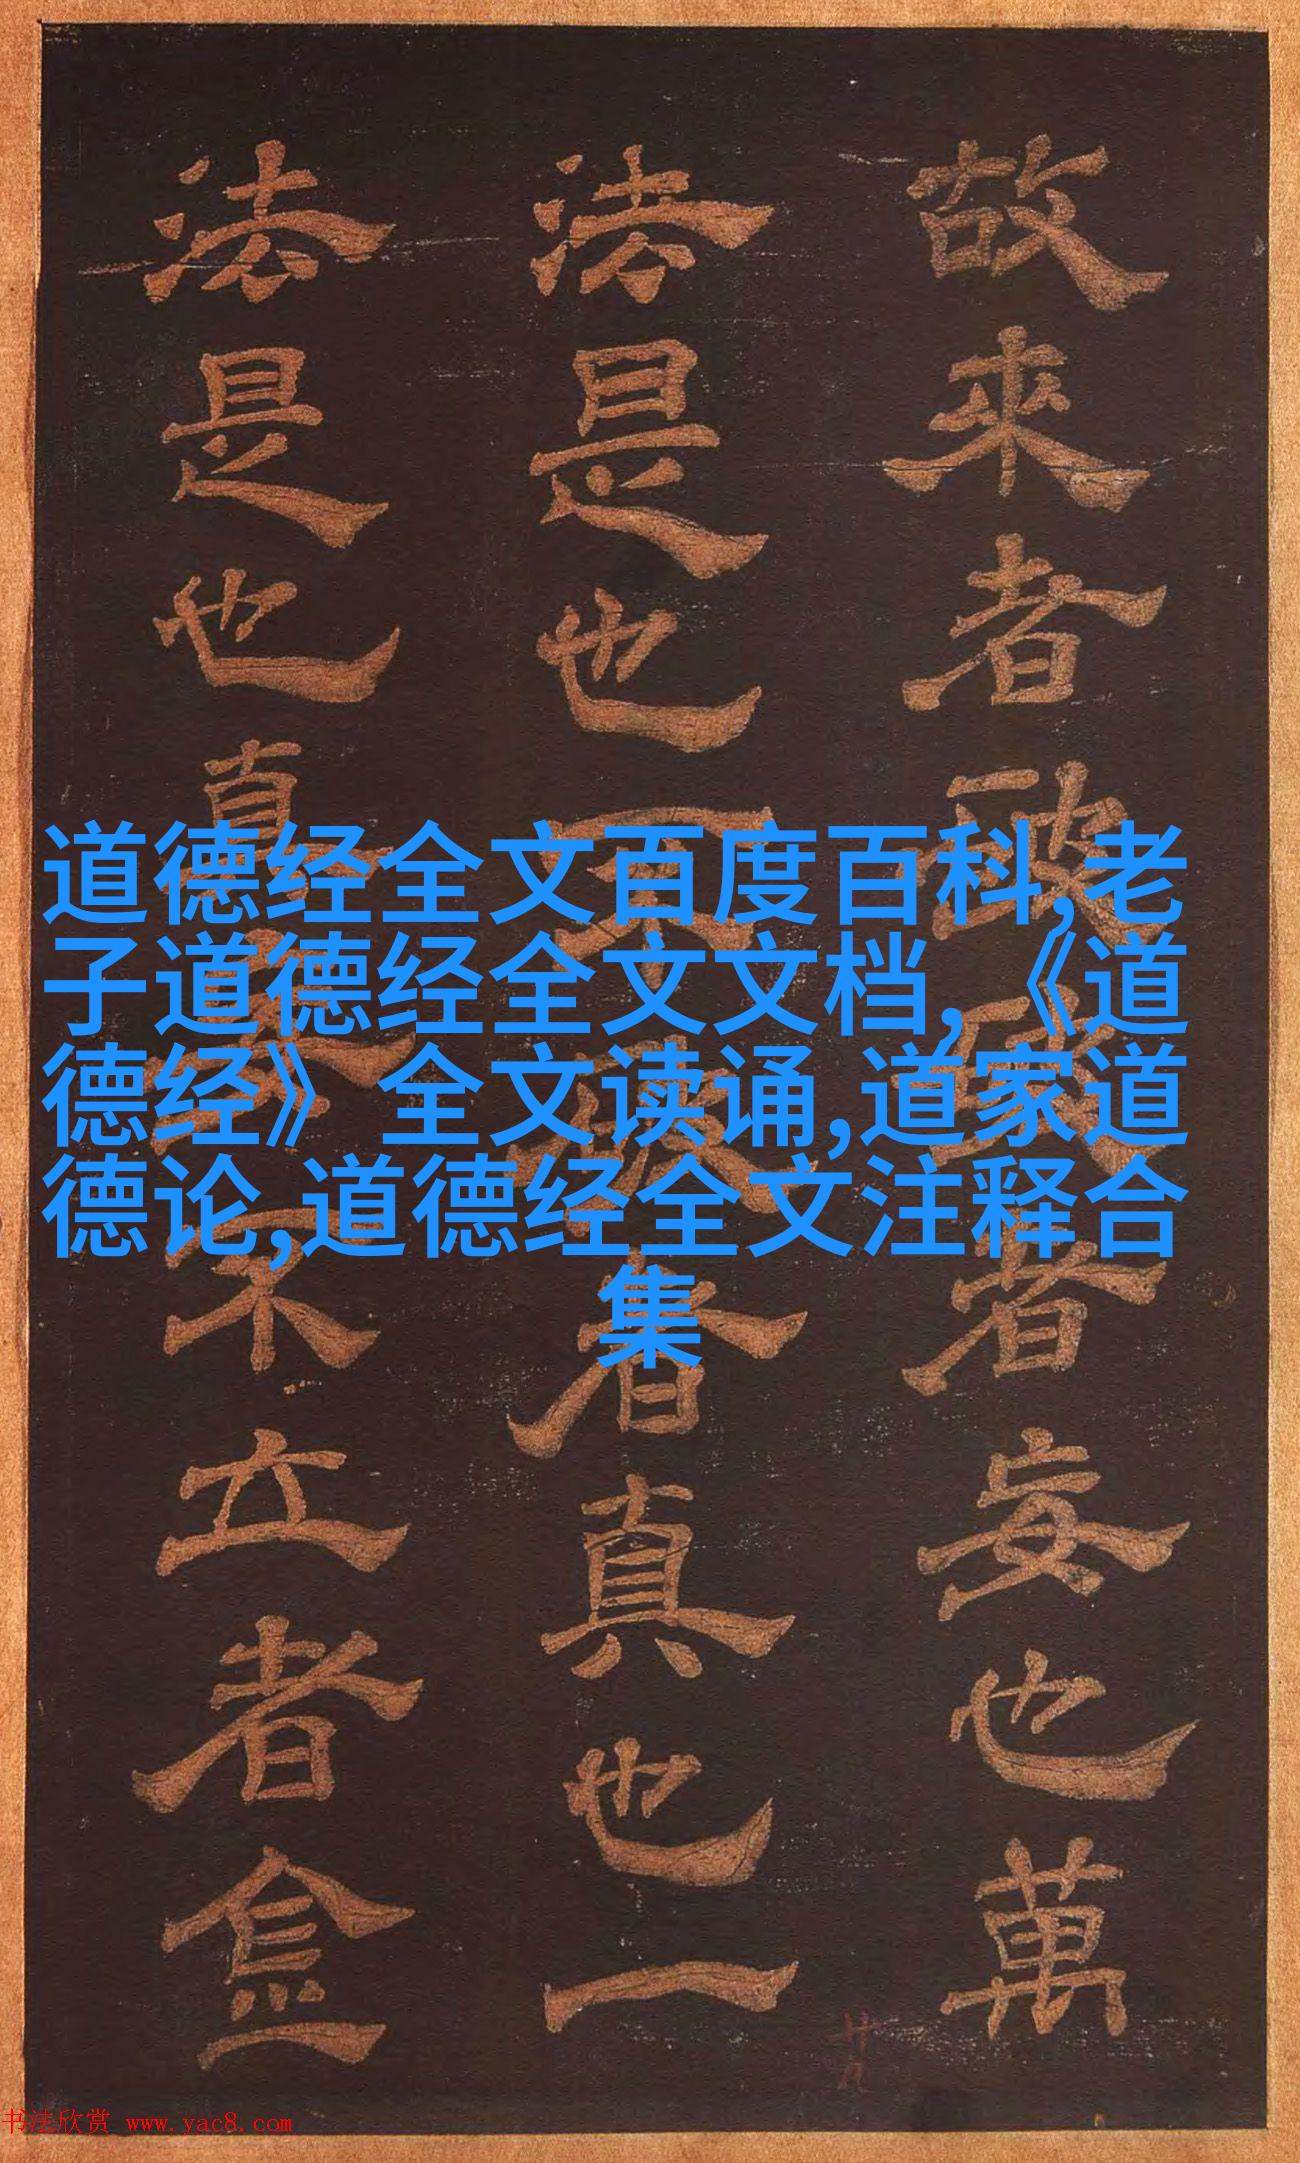 道德经全文百度百科,老
子道德经全文文档,《道
德经》全文读诵,道家道
德论,道德经全文注释合
集
故來者者妄也萬
法是也不者真也一
法是也真不立者
廿九
书法欣赏 www.yac8.com